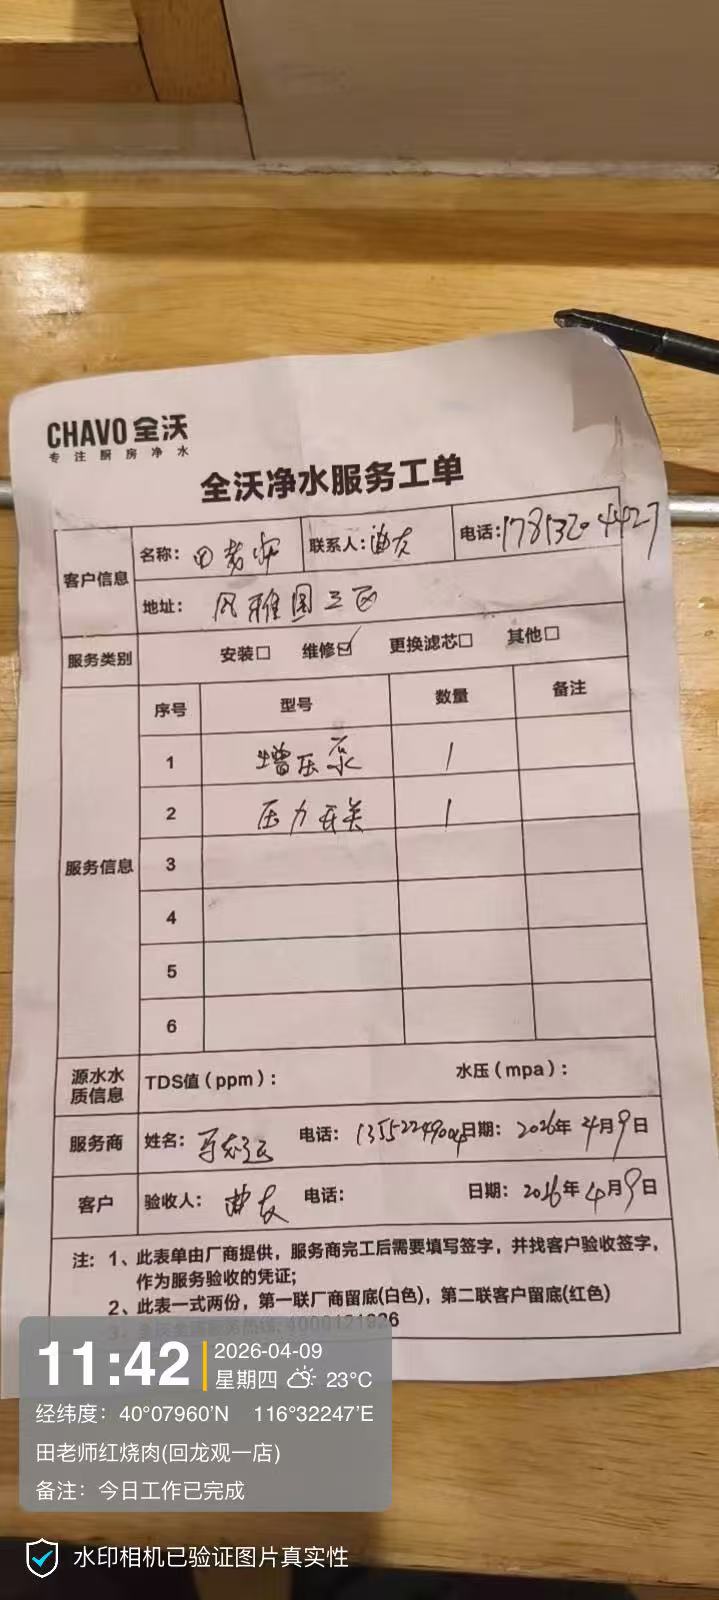 CHAVO 全沃
专注厨房净水
全沃净水服务工单
客户信息 名称：田老师 联系人：曲友 电话：17813204427
地址：风雅园三区
服务类别 安装□ 维修☑ 更换滤芯□ 其他□
服务信息 序号 型号 数量 备注
1 增压泵 1
2 压力开关 1
3
4
5
6
源水水质信息 TDS值（ppm）： 水压（mpa）：
服务商 姓名： 电话：13552249004 日期：2026年4月9日
客户 验收人：曲友 电话： 日期：2026年4月9日
注：1、此表单由厂商提供，服务商完工后需要填写签字，并找客户验收签字，
作为服务验收的凭证；
2、此表一式两份，第一联厂商留底(白色)，第二联客户留底(红色)
3、全沃全国服务热线：4000121926
11:42 2026-04-09
星期四 23°C
经纬度：40°07960'N 116°32247'E
田老师红烧肉(回龙观一店)
备注：今日工作已完成
水印相机已验证图片真实性